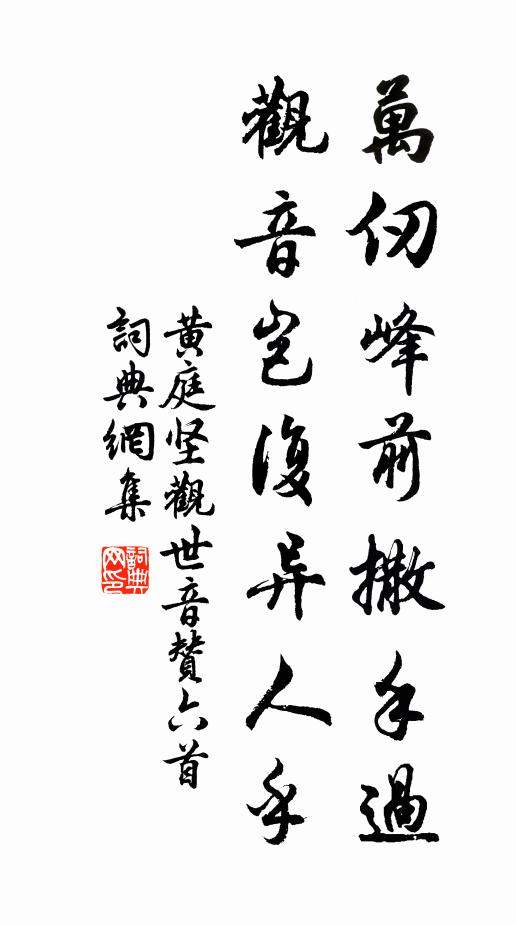 萬仞峰前撒手過
觀音豈復异人乎
黄庭坚觀世音贊六首
詞典網集
詞典网印